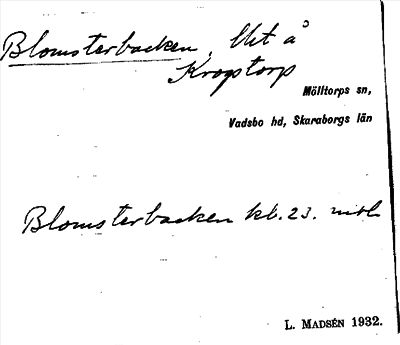 Blomsterbacken, Utet å
Krogstorp
Mölltorps sn,
Vadsbo hd, Skaraborgs län
Blomsterbacken kb. 23.
L. MADSÉN 1932.